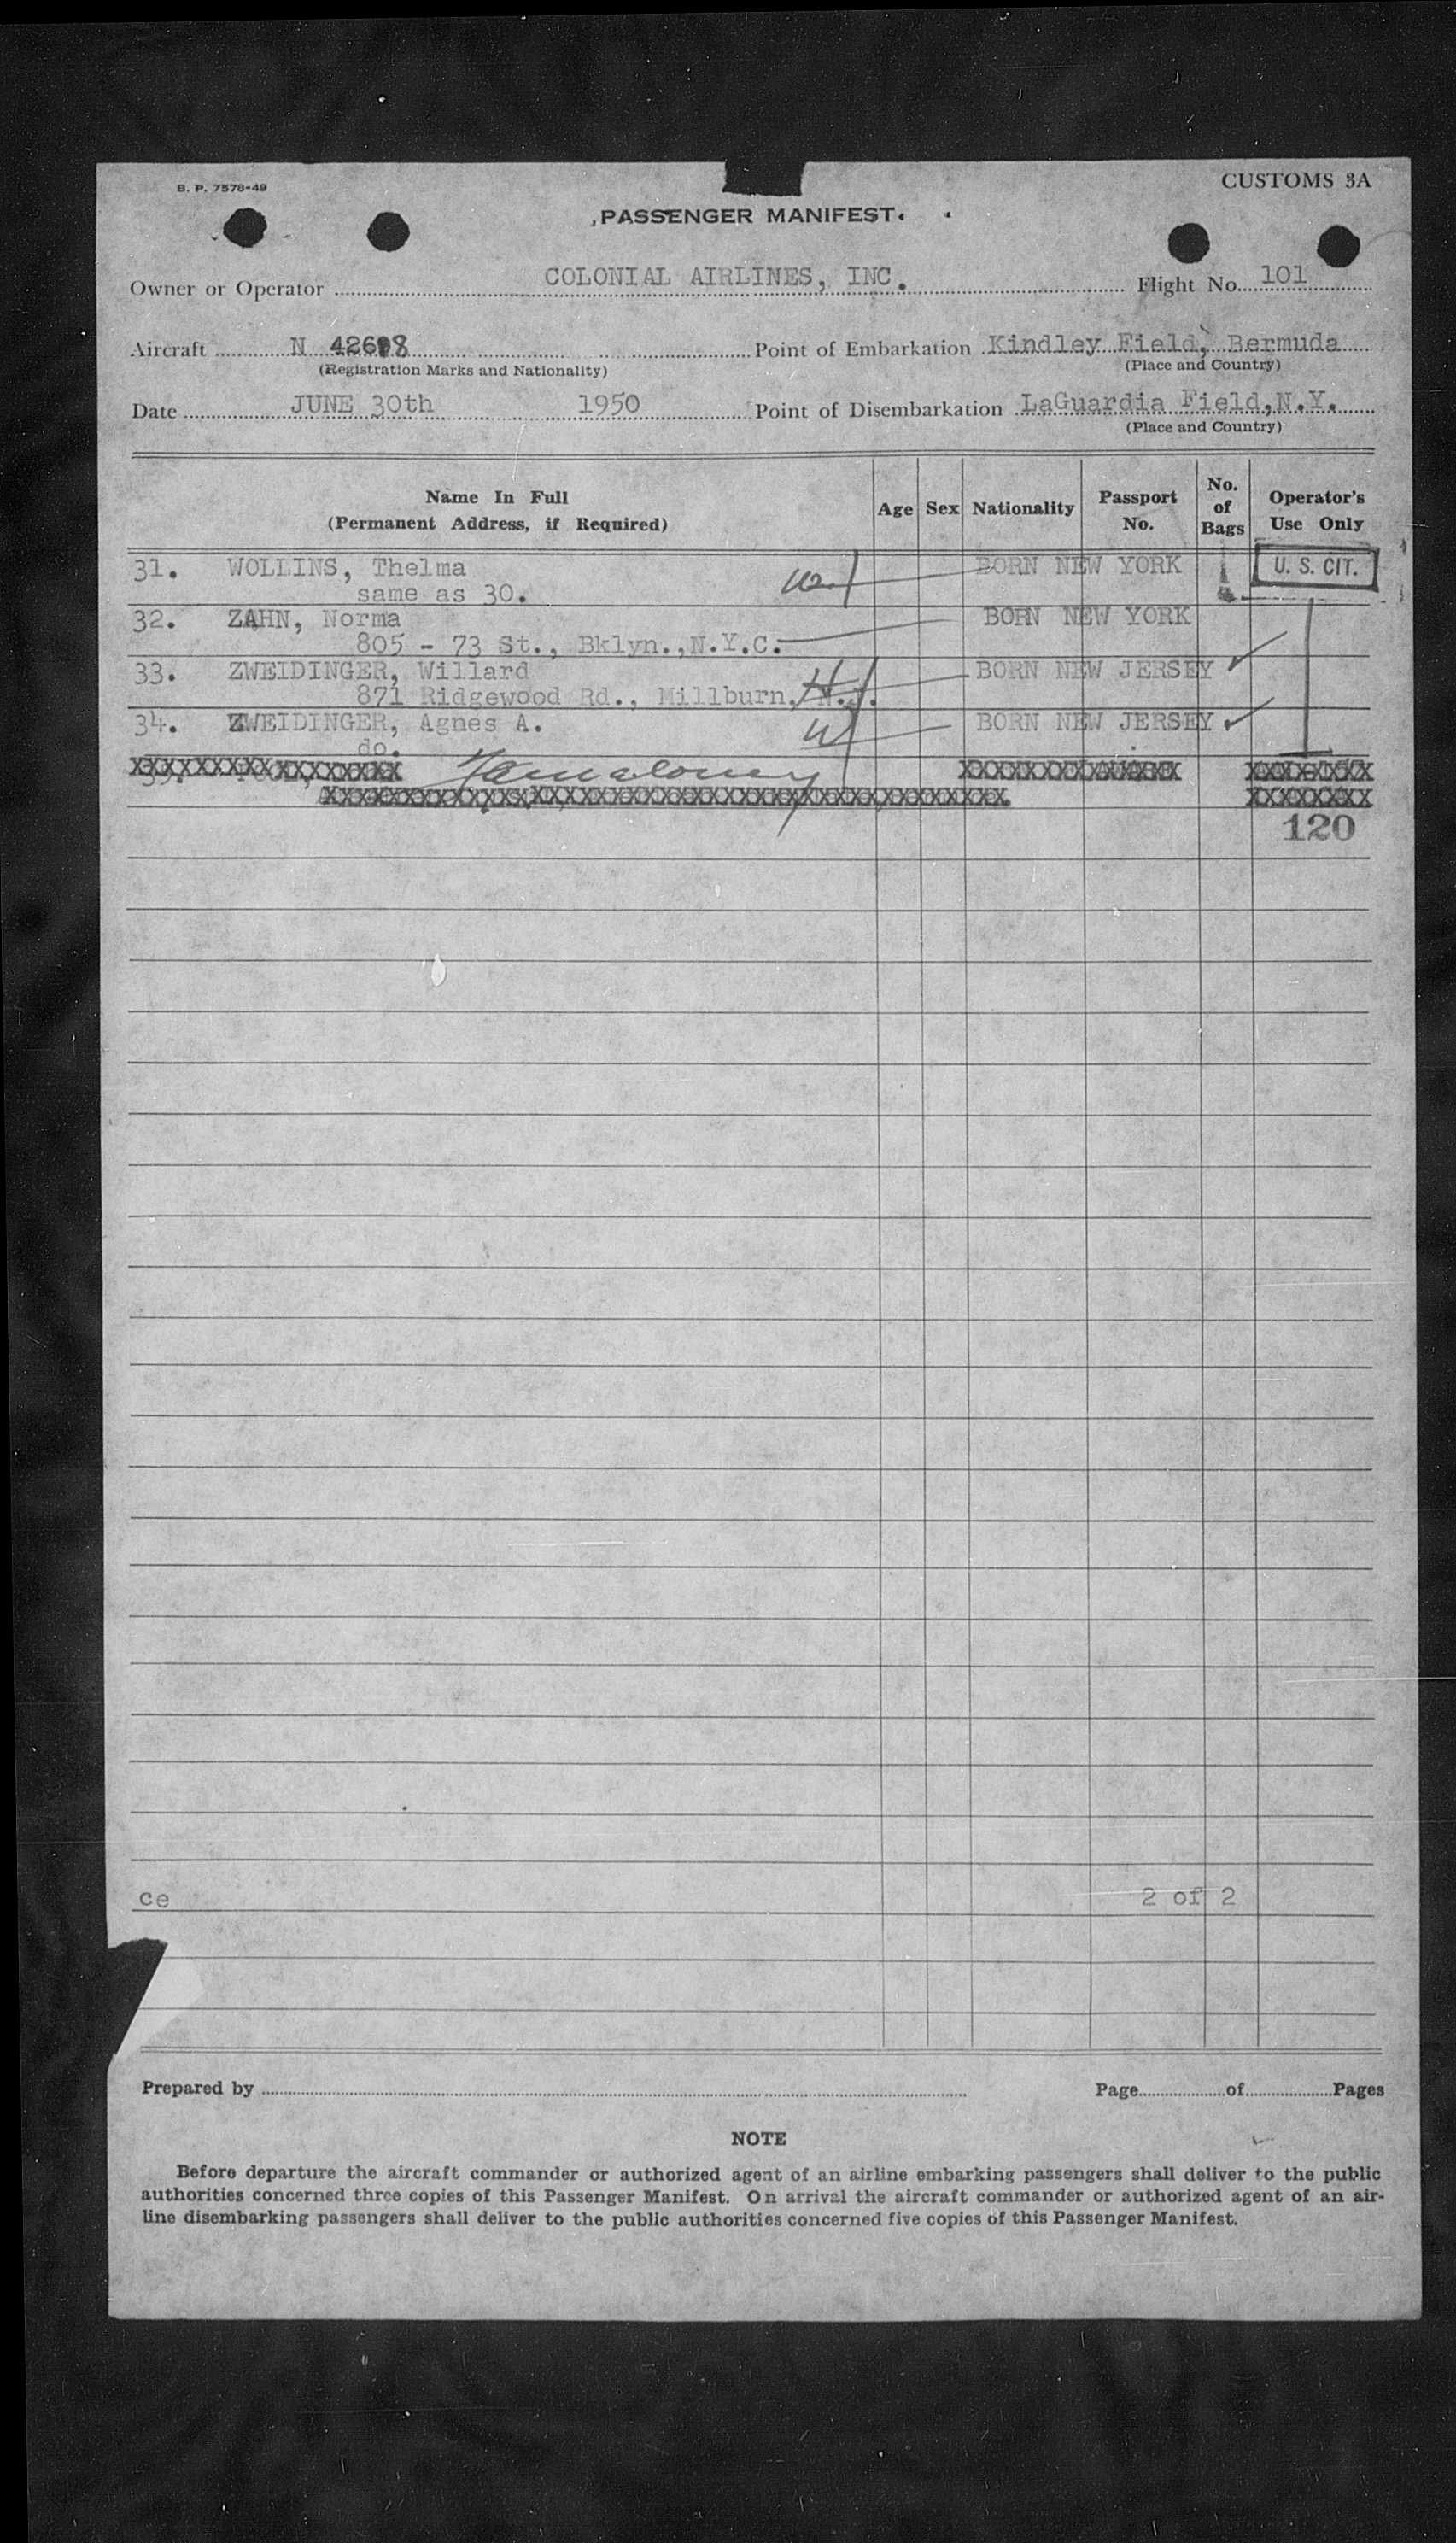 B. P. 7578-49
CUSTOMS 3A
PASSENGER MANIFEST
Owner or Operator COLONIAL AIRLINES, INC. Flight No. 101
Aircraft N 42698 Point of Embarkation Kindley Field, Bermuda
(Registration Marks and Nationality) (Place and Country)
Date JUNE 30th 1950 Point of Disembarkation LaGuardia Field,N.Y.
(Place and Country)
Name In Full
(Permanent Address, if Required)
Age Sex Nationality Passport No. No. of Bags Operator's Use Only
31. WOLLINS, Thelma BORN NEW YORK U. S. CIT.
same as 30. W
32. ZAHN, Norma BORN NEW YORK
805 - 73 St., Bklyn.,N.Y.C.
33. ZWEIDINGER, Willard BORN NEW JERSEY
871 Ridgewood Rd., Millburn, N.J. H
34. ZWEIDINGER, Agnes A. W BORN NEW JERSEY
do.
120
ce 2 of 2
Prepared by Page of Pages
NOTE
Before departure the aircraft commander or authorized agent of an airline embarking passengers shall deliver to the public
authorities concerned three copies of this Passenger Manifest. On arrival the aircraft commander or authorized agent of an air-
line disembarking passengers shall deliver to the public authorities concerned five copies of this Passenger Manifest.